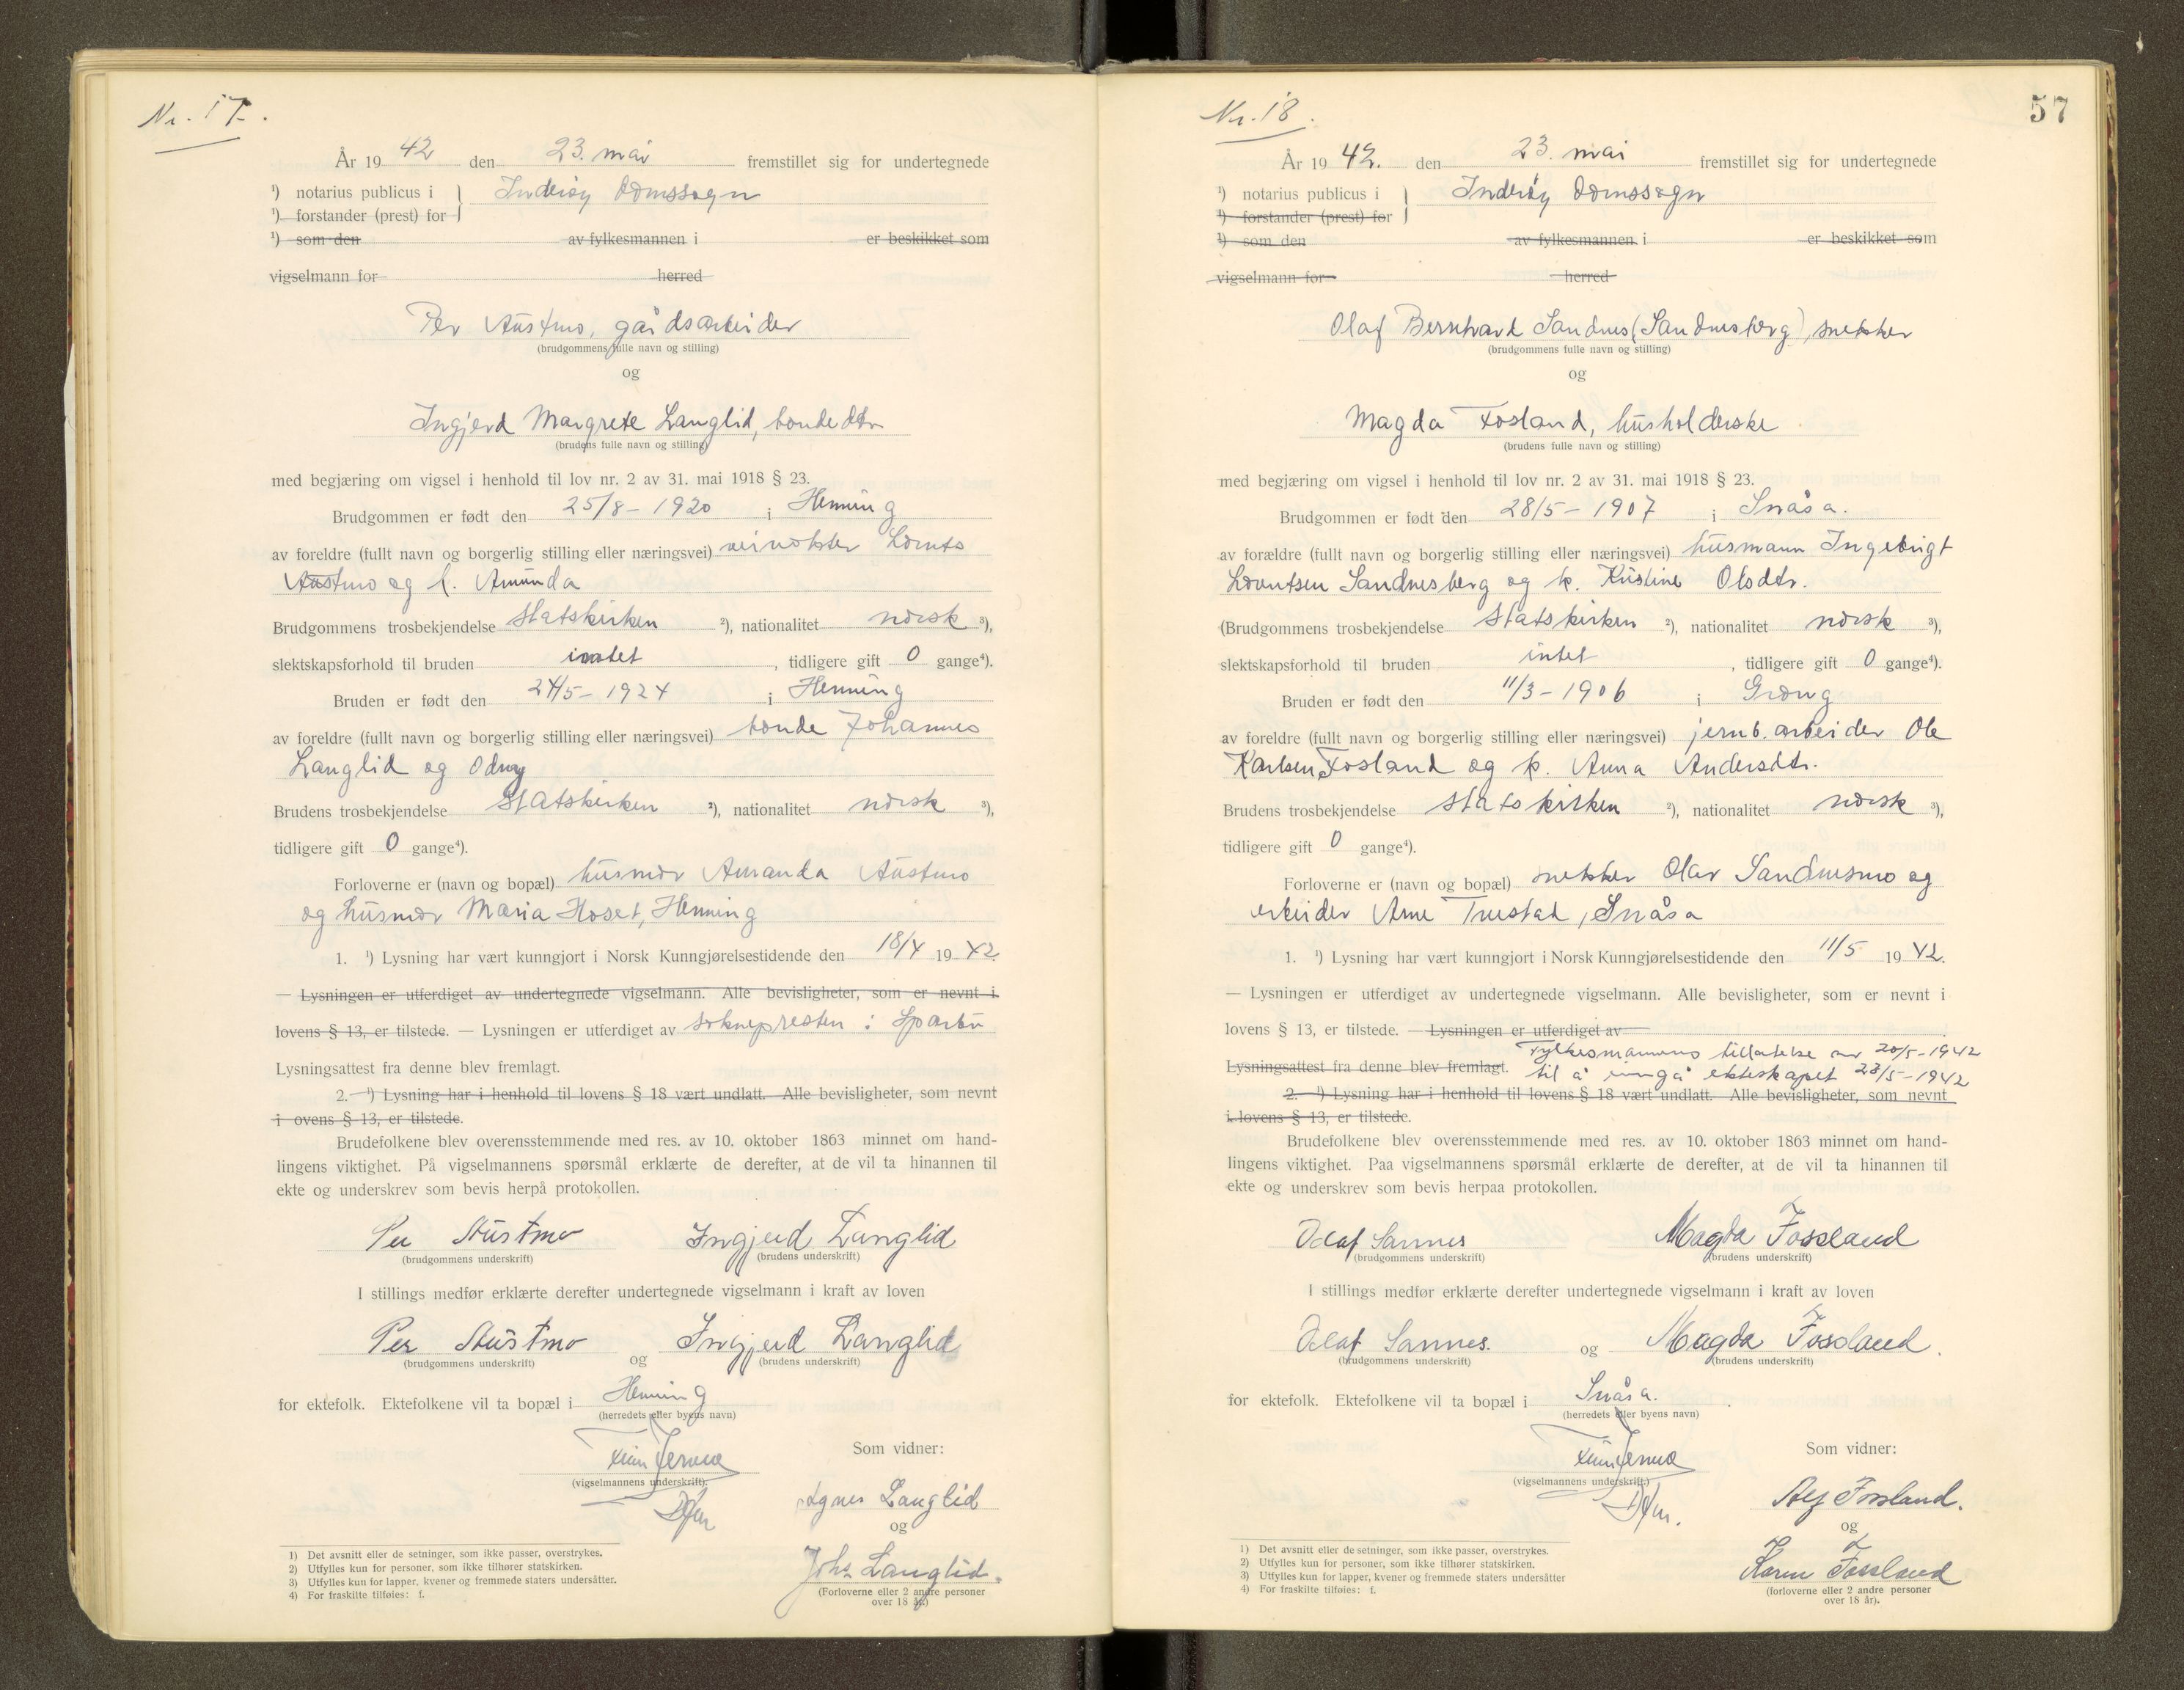 Nr. 17.
År 19 42 den 23. mai fremstillet sig for undertegnede
¹) notarius publicus i } Inderøy domssogn
¹) forstander (prest) for
¹) som den av fylkesmannen i er beskikket som
vigselmann for herred
Per Austmo, gårdsarbeider
(brudgommens fulle navn og stilling)
og
Ingjerd Margrete Langlid, bondedtr
(brudens fulle navn og stilling)
med begjæring om vigsel i henhold til lov nr. 2 av 31. mai 1918 § 23.
Brudgommen er født den 25/8 - 1920 i Henning
av foreldre (fullt navn og borgerlig stilling eller næringsvei) veivokter Lornts
Austmo og h. Amunda
Brudgommens trosbekjendelse statskirken ²), nationalitet norsk ³),
slektskapsforhold til bruden intet, tidligere gift 0 gange⁴).
Bruden er født den 24/5 - 1924 i Henning
av foreldre (fullt navn og borgerlig stilling eller næringsvei) bonde Johannes
Langlid og Odny
Brudens trosbekjendelse statskirken ²), nationalitet norsk ³),
tidligere gift 0 gange⁴).
Forloverne er (navn og bopæl) husmor Amanda Austmo
og husmor Maria Hoset, Henning
1. ¹) Lysning har vært kunngjort i Norsk Kunngjørelsestidende den 18/4 1942.
— Lysningen er utferdiget av undertegnede vigselmann. Alle bevisligheter, som er nevnt i
lovens § 13, er tilstede. — Lysningen er utferdiget av soknepresten i Sparbu
Lysningsattest fra denne blev fremlagt.
2. ¹) Lysning har i henhold til lovens § 18 vært undlatt. Alle bevisligheter, som nevnt
i ovens § 13, er tilstede.
Brudefolkene blev overensstemmende med res. av 10. oktober 1863 minnet om hand-
lingens viktighet. På vigselmannens spørsmål erklærte de derefter, at de vil ta hinannen til
ekte og underskrev som bevis herpå protokollen.
Per Austmo Ingjerd Langlid
(brudgommens underskrift) (brudens underskrift)
I stillings medfør erklærte derefter undertegnede vigselmann i kraft av loven
Per Austmo og Ingjerd Langlid
(brudgommens underskrift) (brudens underskrift)
for ektefolk. Ektefolkene vil ta bopæl i Henning
(herredets eller byens navn)
Som vidner:
(vigselmannens underskrift).
Agnes Langlid
og
Johs Langlid.
(Forloverne eller 2 andre personer
over 18 år.)
1) Det avsnitt eller de setninger, som ikke passer, overstrykes.
2) Utfylles kun for personer, som ikke tilhører statskirken.
3) Utfylles kun for lapper, kvener og fremmede staters undersåtter.
4) For fraskilte tilføies: f.
57
Nr. 18.
År 19 42. den 23. mai fremstillet sig for undertegnede
¹) notarius publicus i } Inderøy domssogn
¹) forstander (prest) for
¹) som den av fylkesmannen i er beskikket som
vigselmann for herred
Olaf Bernhard Sandnes (Sandnesberg), snekker
(brudgommens fulle navn og stilling)
og
Magda Fosland, husholderske
(brudens fulle navn og stilling)
med begjæring om vigsel i henhold til lov nr. 2 av 31. mai 1918 § 23.
Brudgommen er født den 28/5 - 1907 i Snåsa.
av forældre (fullt navn og borgerlig stilling eller næringsvei) husmann Ingebrigt
Lorntsen Sandnesberg og h. Kristine Olsdtr.
(Brudgommens trosbekjendelse statskirken ²), nationalitet norsk ³),
slektskapsforhold til bruden intet, tidligere gift 0 gange⁴).
Bruden er født den 11/3 - 1906 i Grong
av foreldre (fullt navn og borgerlig stilling eller næringsvei) jernb. arbeider Ole
Karlsen Fosland og h. Anna Andersdtr.
Brudens trosbekjendelse statskirken ²), nationalitet norsk ³),
tidligere gift 0 gange⁴).
Forloverne er (navn og bopæl) snekker Olav Sandnesmo og
arbeider Arne Truestad, Snåsa
1. ¹) Lysning har vært kunngjort i Norsk Kunngjørelsestidende den 11/5 1942.
— Lysningen er utferdiget av undertegnede vigselmann. Alle bevisligheter, som er nevnt i
lovens § 13, er tilstede. — Lysningen er utferdiget av
Fylkesmannens tillatelse av 20/5-1942
Lysningsattest fra denne blev fremlagt. til å inngå ekteskapet 23/5-1942
2. ¹) Lysning har i henhold til lovens § 18 vært undlatt. Alle bevisligheter, som nevnt
i lovens § 13, er tilstede.
Brudefolkene blev overensstemmende med res. av 10. oktober 1863 minnet om hand-
lingens viktighet. Paa vigselmannens spørsmål erklærte de derefter, at de vil ta hinannen til
ekte og underskrev som bevis herpaa protokollen.
Olaf Sannes Magda Fossland
(brudgommens underskrift) (brudens underskrift)
I stillings medfør erklærte derefter undertegnede vigselmann i kraft av loven
Olaf Sannes. og Magda Fossland.
(brudgommens underskrift) (brudens underskrift)
for ektefolk. Ektefolkene vil ta bopæl i Snåsa.
(herredets eller byens navn)
Som vidner:
(vigselmannens underskrift.)
Alf Fossland.
og
Karen Fossland
(forloverne eller 2 andre personer
over 18 år).
1) Det avsnitt eller de setninger, som ikke passer, overstrykes.
2) Utfylles kun for personer, som ikke tilhører statskirken.
3) Utfylles kun for lapper, kvener og fremmede staters undersåtter
4) For fraskilte tilføies: f.